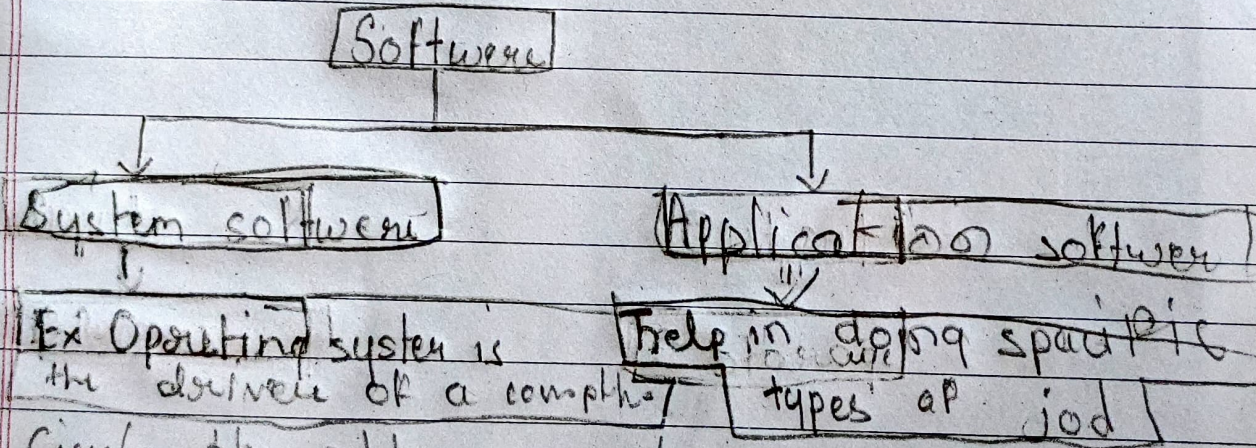 Softwere
System softweri
Application softwer
Ex Oprating system is
the driver of a
help in doing spacific
types of jod